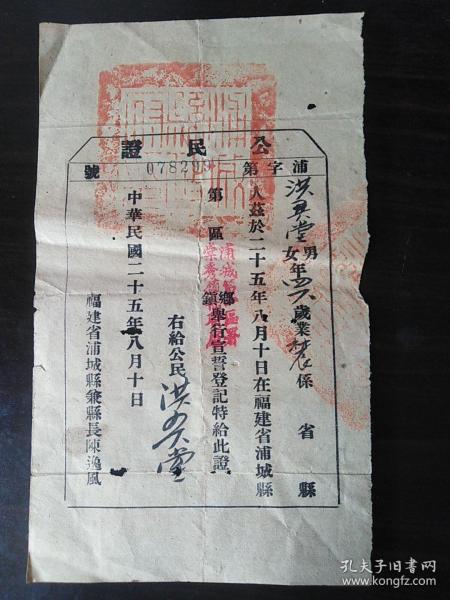 公民證
浦字第078298號
洪興堂男女年四八歲業農係 省 縣
人茲於二十五年八月十日在福建省浦城縣
第 區 鄉鎮舉行宣誓登記特給此證
右給公民 洪興堂
中華民國二十五年八月十日
福建省浦城縣兼縣長陳逸風
孔夫子旧书网
www.kongfz.com